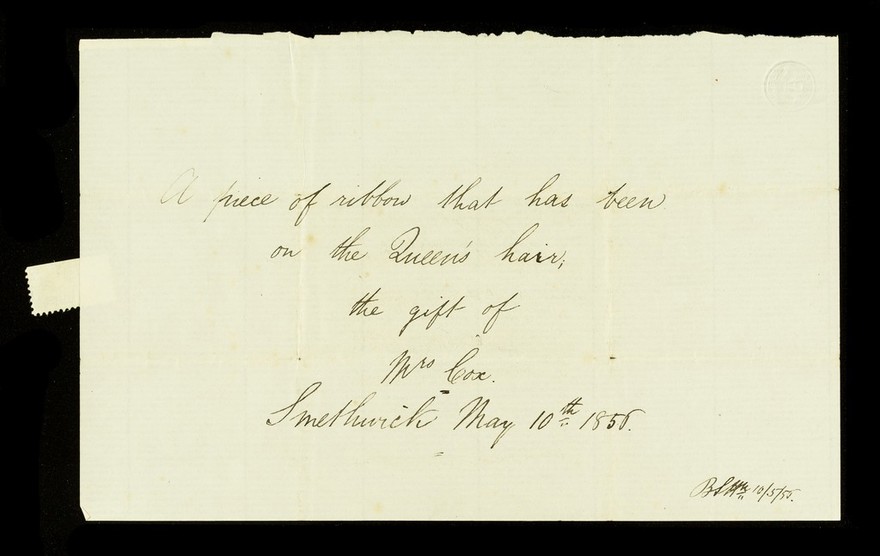 A piece of ribbon that has been
on the Queen's hair;
the gift of
Mrs Cox.
Smethwick May 10th 1856.